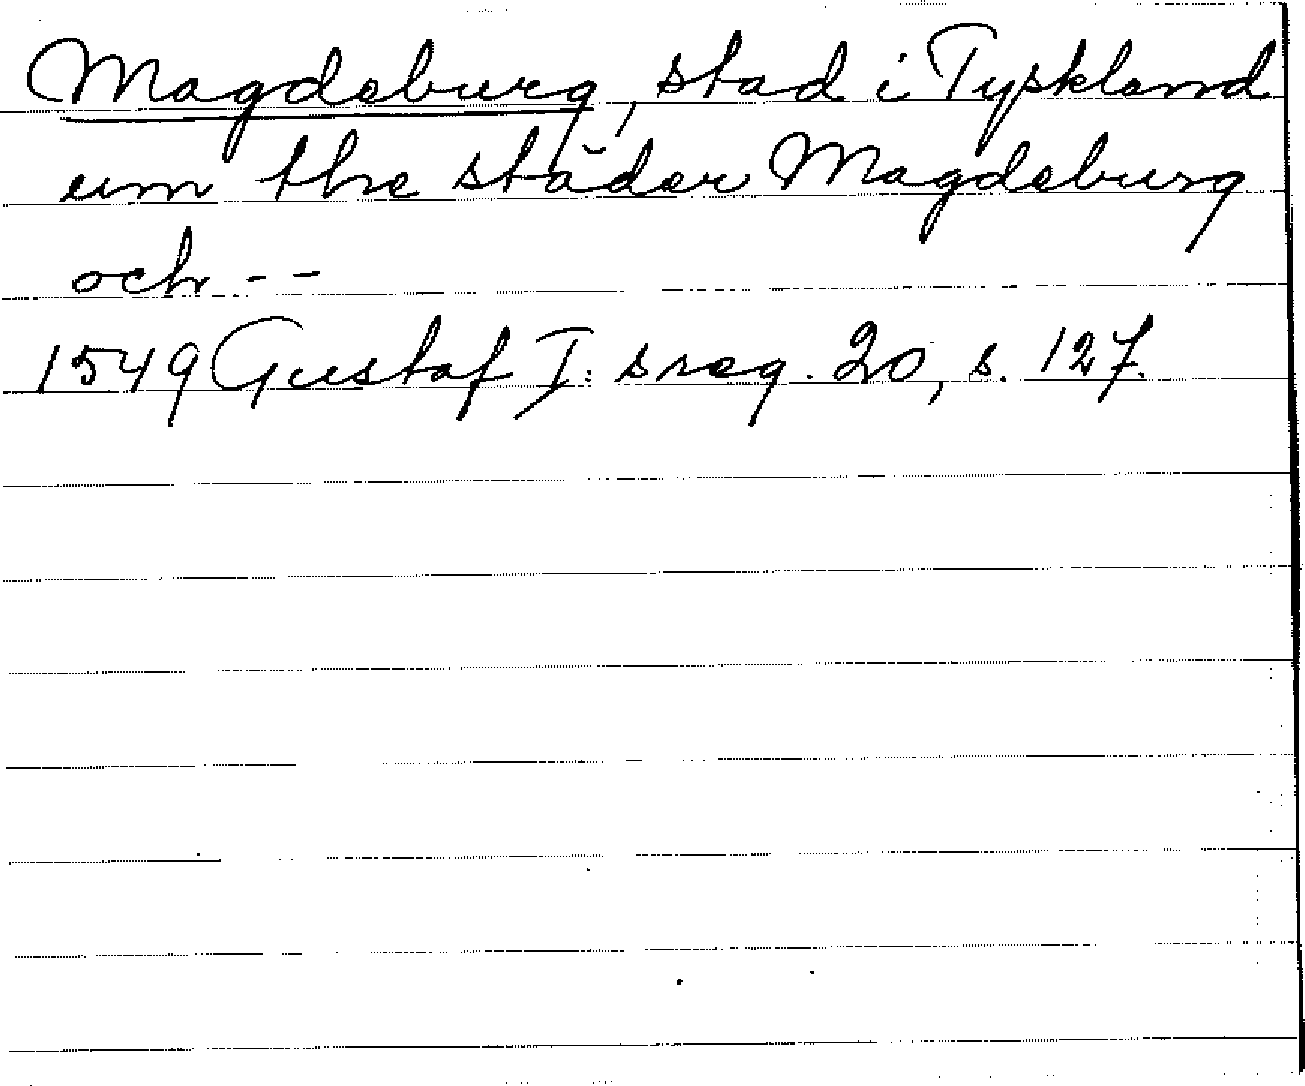 Magdeburg, stad i Tyskland
um the städer Magdeburg
och - -
1549 Gustaf I: s reg. 20, s. 127.